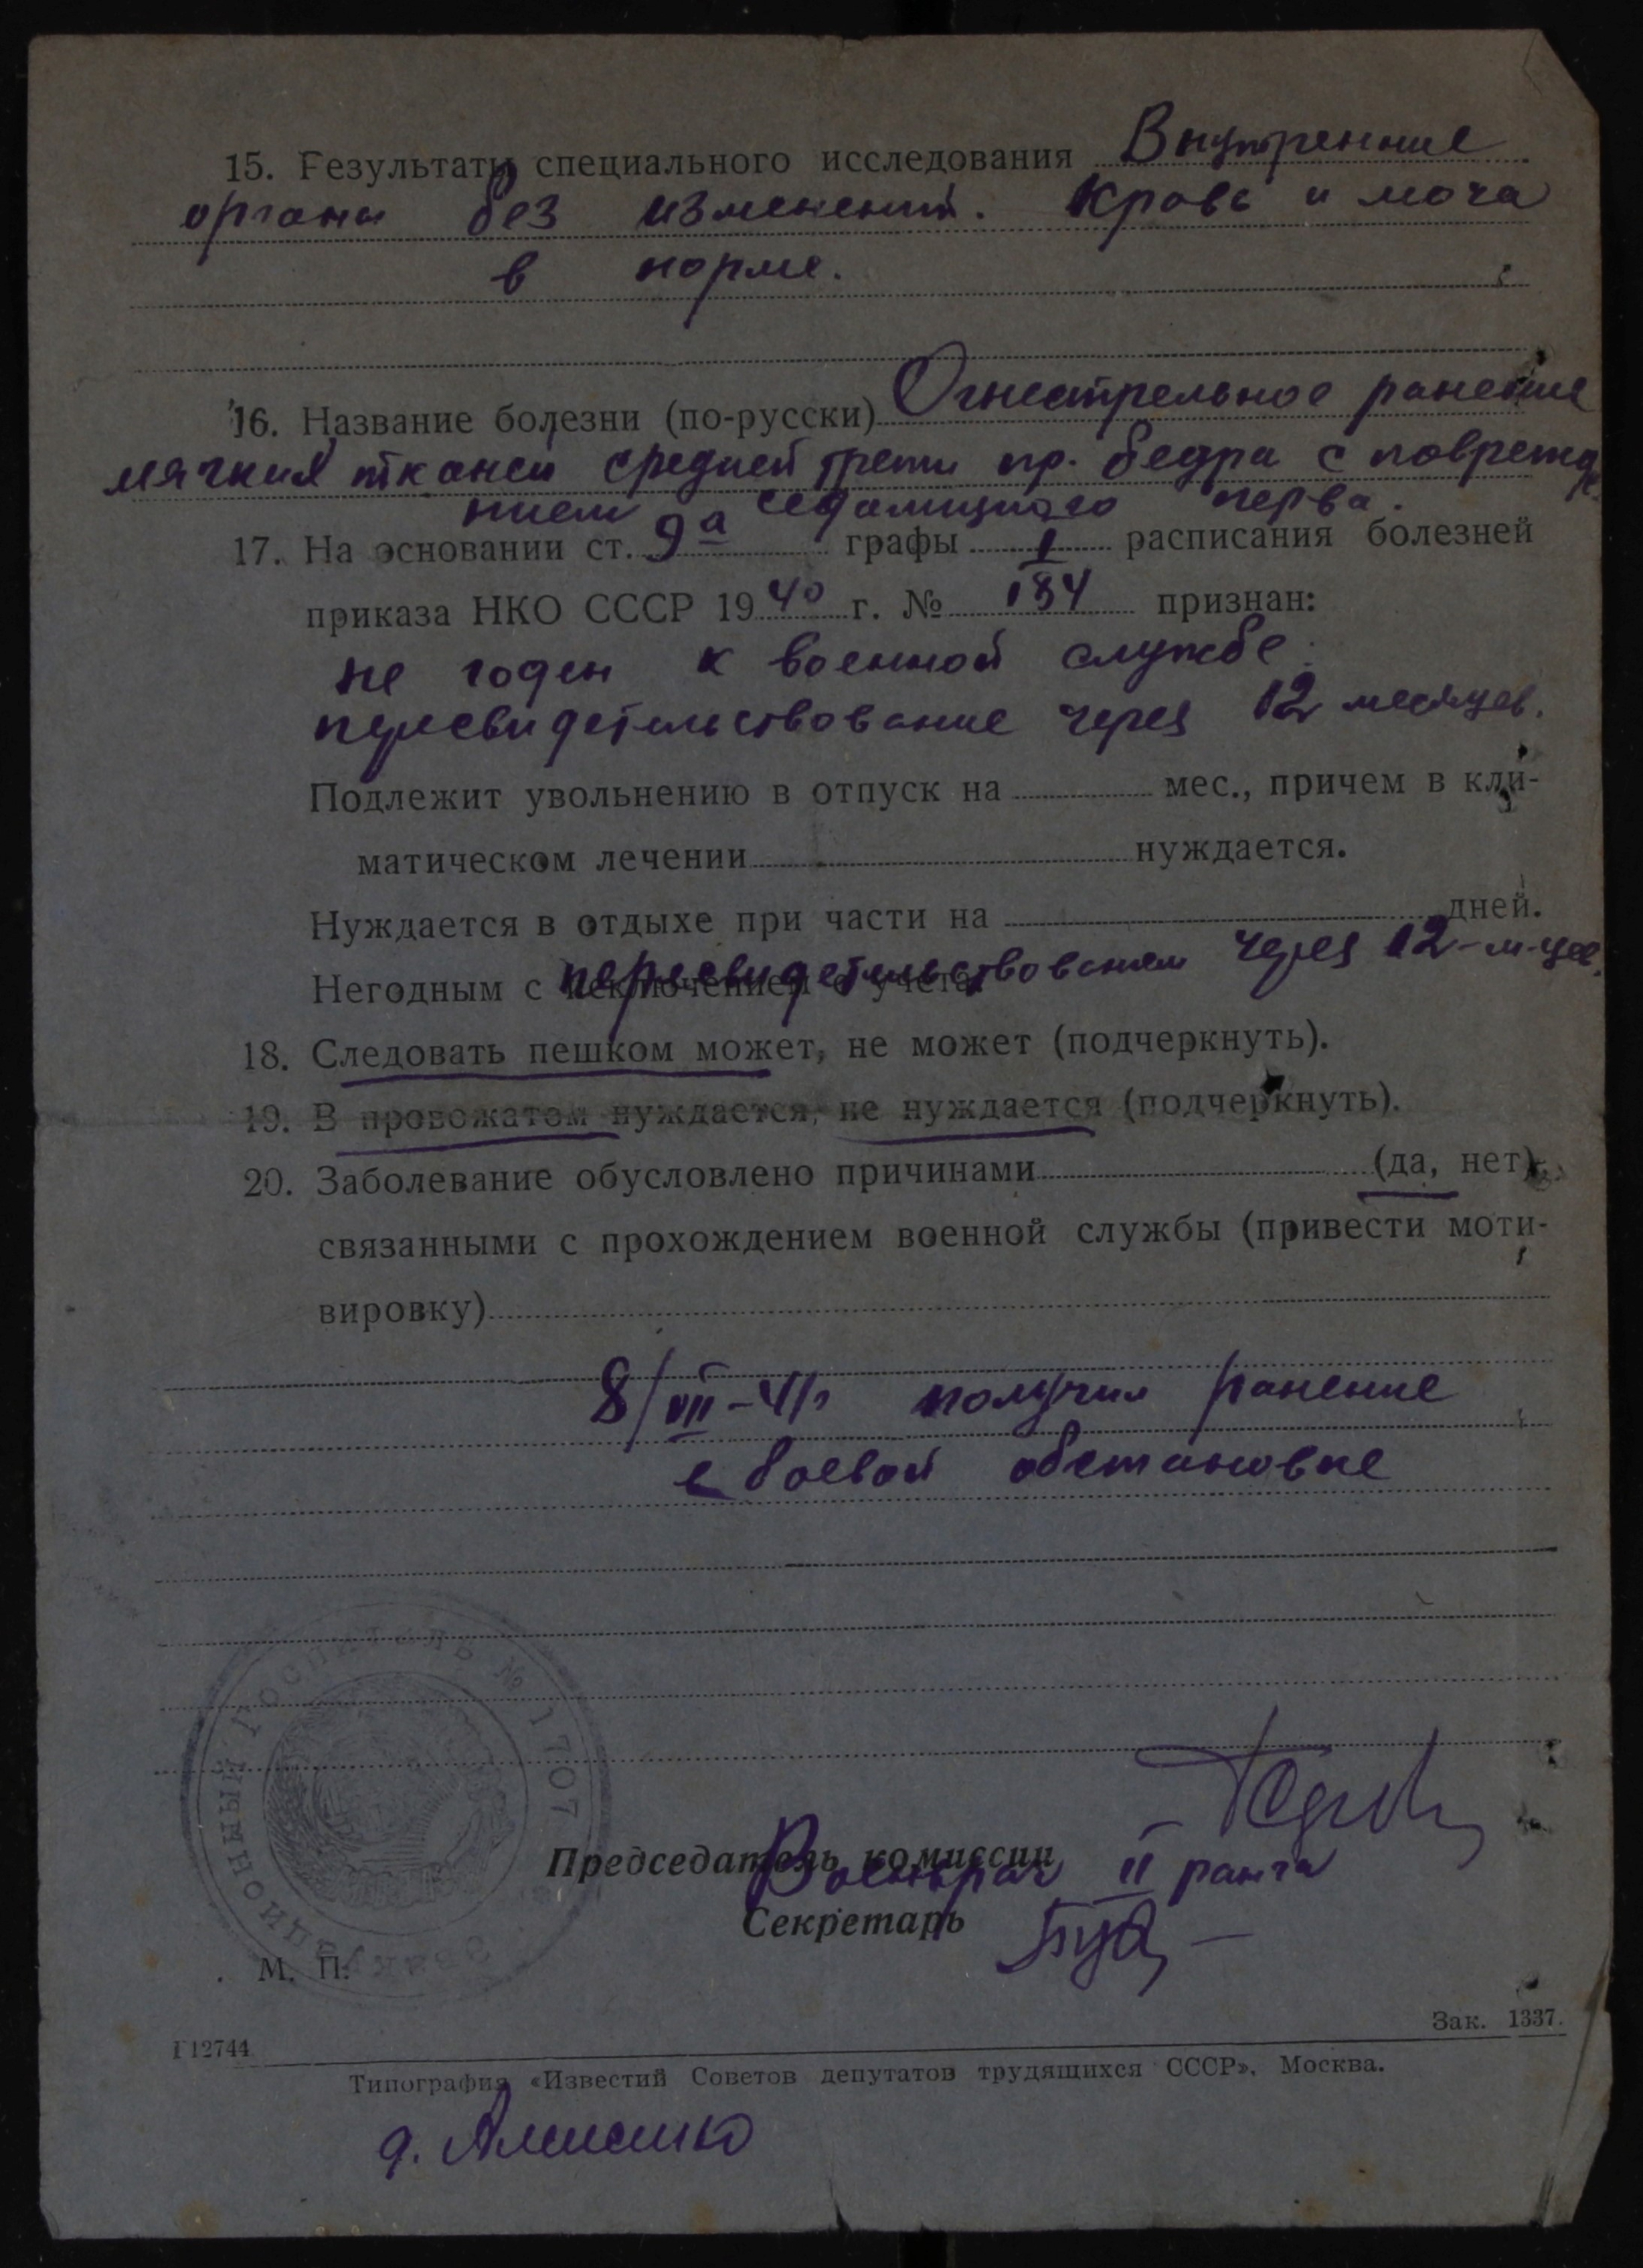 15. Результаты специального исследования Внутренние
органы без изменений. Кровь и моча
в норме.
16. Название болезни (по-русски) Огнестрельное ранение
мягких тканей средней трети пр. бедра с поврежде
нием седалищного нерва.
17. На основании ст. 9а графы I расписания болезней
приказа НКО СССР 1940 г. № 184 признан:
не годен к военной службе.
пересвидетельствование через 12 месяцев.
Подлежит увольнению в отпуск на мес., причем в кли-
матическом лечении нуждается.
Нуждается в отдыхе при части на дней.
Негодным с исключением с учета пересвидетельствованием через 12-м-цев.
18. Следовать пешком может, не может (подчеркнуть).
19. В провожатом нуждается, не нуждается (подчеркнуть).
20. Заболевание обусловлено причинами (да, нет),
связанными с прохождением военной службы (привести моти-
вировку)
8/VII-41г получил ранение
в боевой обстановке
Эвакуационный Госпиталь № 1707
Председатель комиссии
Военврач II ранга
Секретарь
М. П.
Зак. 1337.
Г12744
Типография «Известий Советов депутатов трудящихся СССР», Москва.